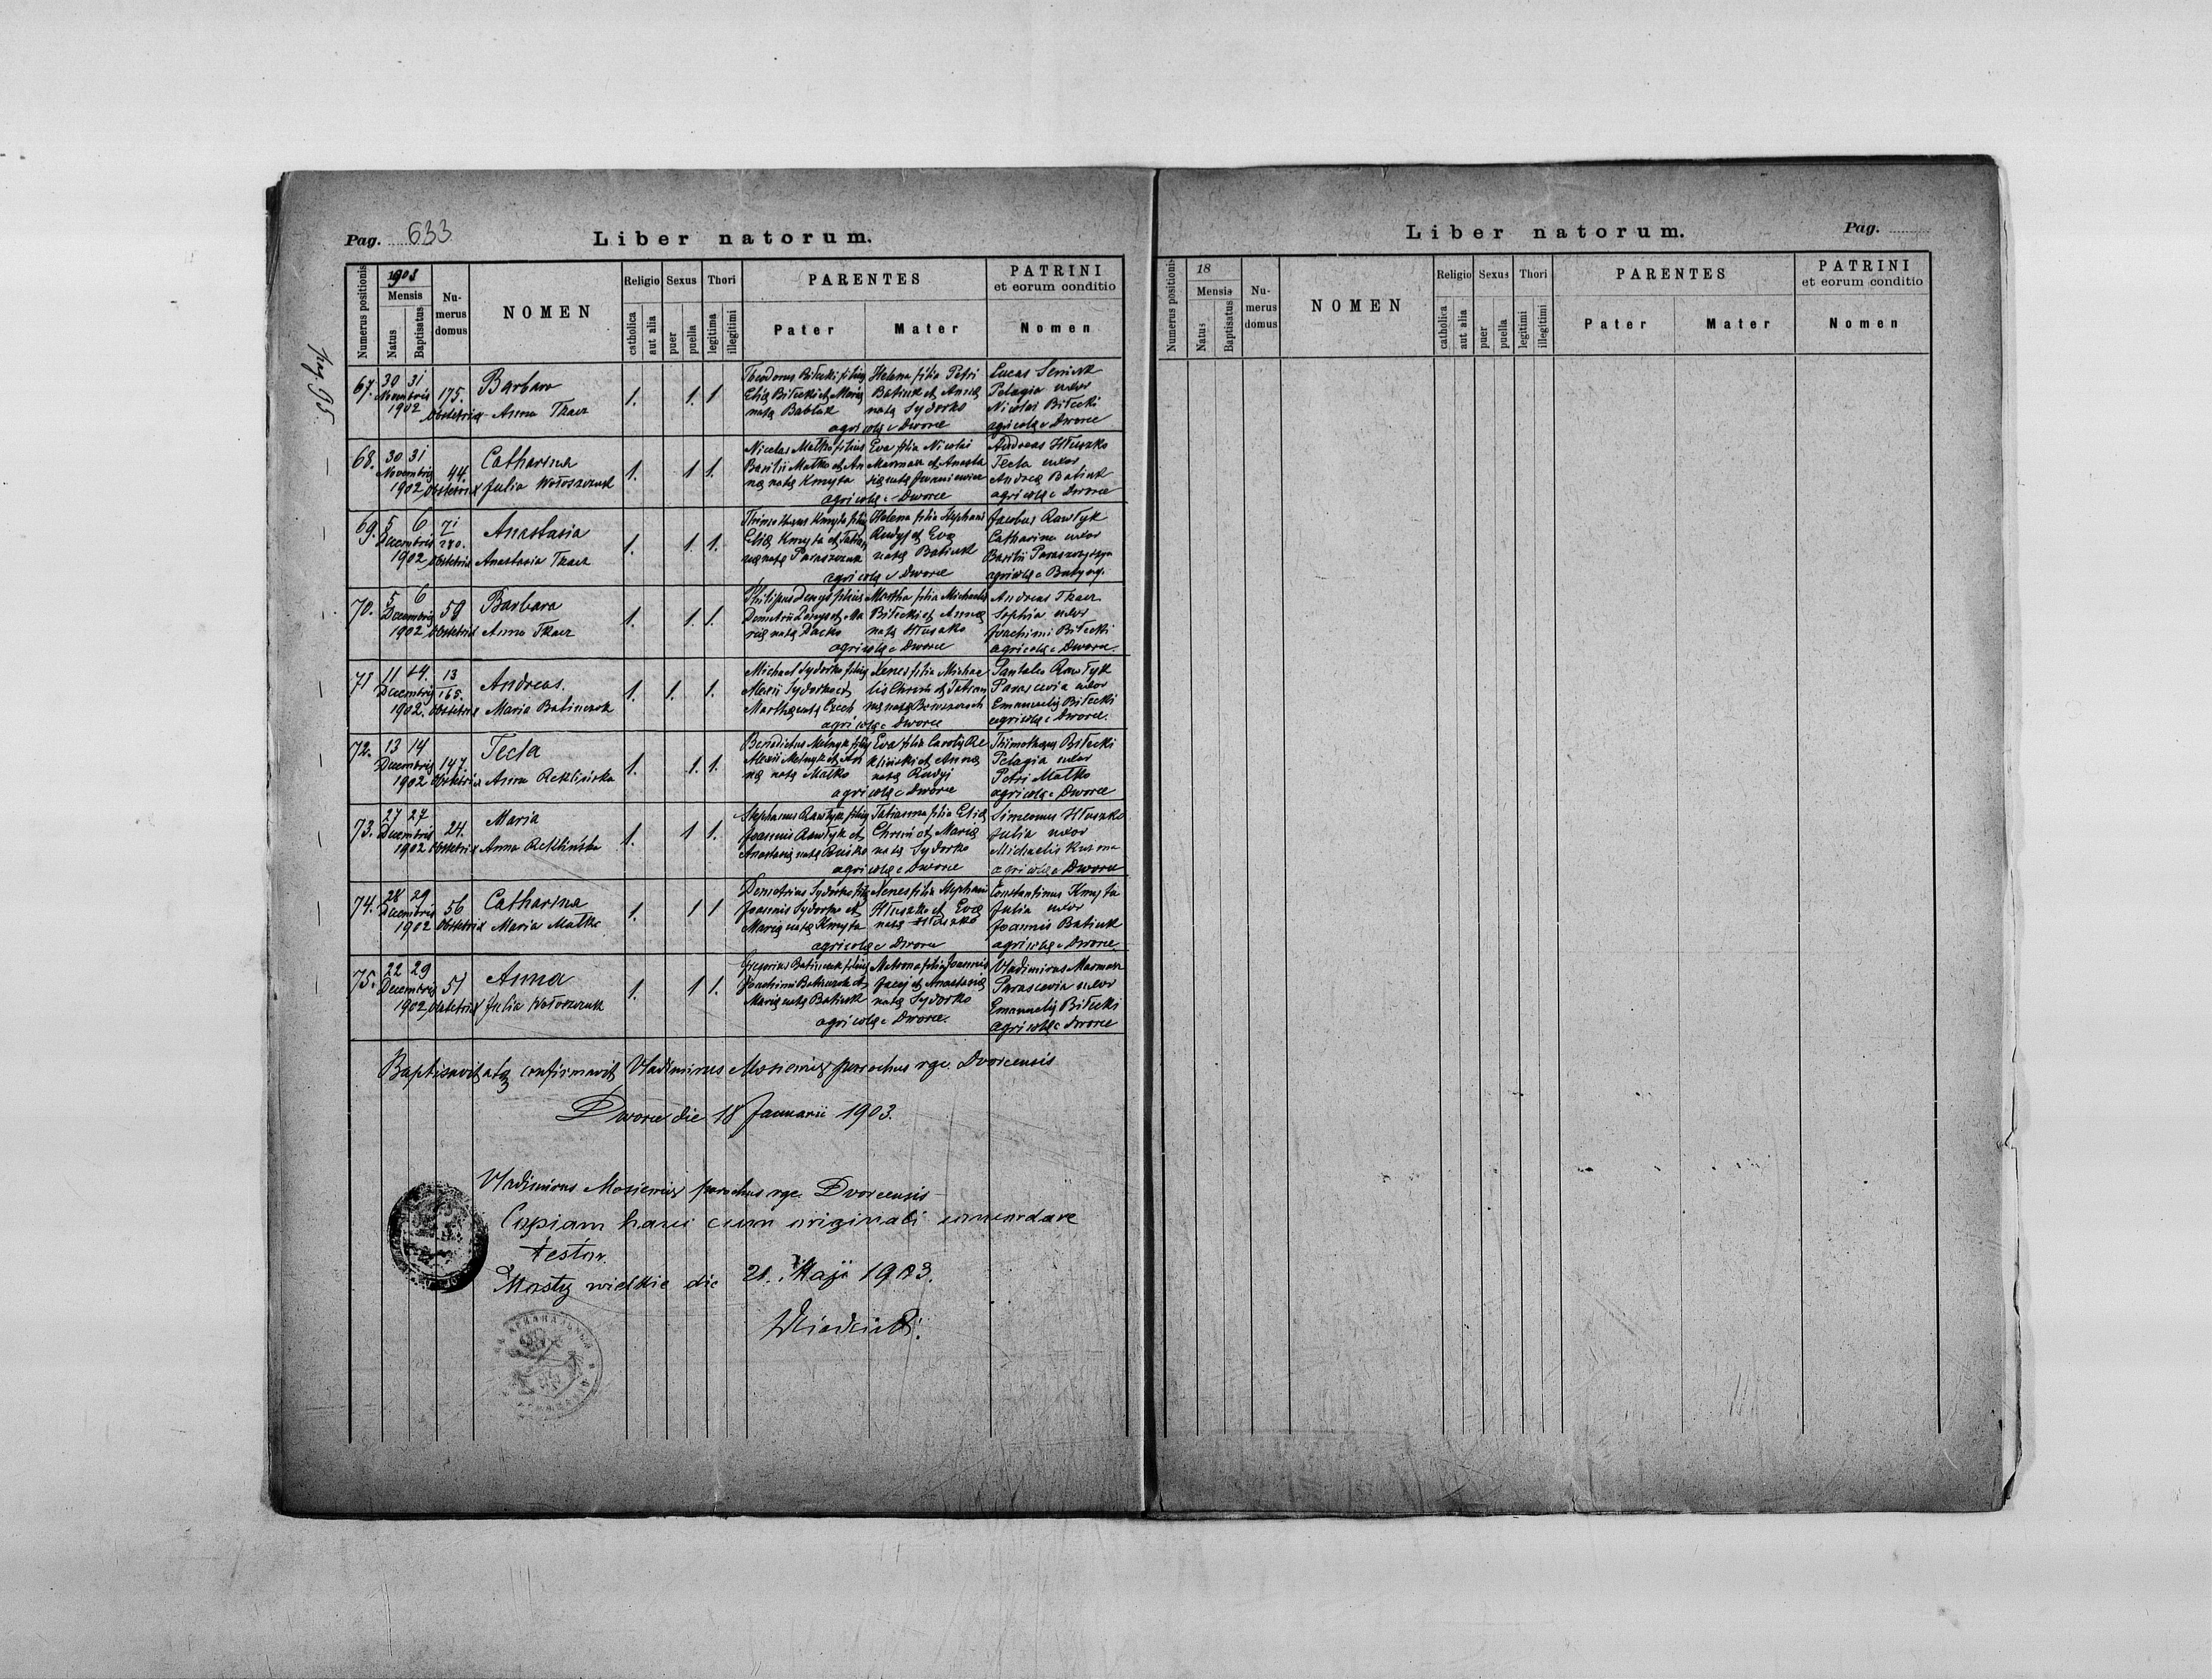 Pag. 633
Liber natorum.
Numerus positionis
1902
Mensis
Natus
Baptisatus
Numerus domus
NOMEN
Religio
catholica
aut alia
Sexus
puer
puella
Thori
legitima
illegitimi
PARENTES
Pater
Mater
PATRINI
et eorum conditio
Nomen
pag 95.
67. 30 31 Novembris 1902 175.
Barbara
Obstetrix Anna Tkacz
1. 1. 1
Teodorus Biłecki filius
Eliæ Biłecki et Mariæ
natæ Bablak
Helena filia Petri
Batiuk et Annæ
natæ Sydorko
agricolæ e Dworce
Lucas Seniuk
Pelagia uxor
Nicolai Biłecki
agricolæ e Dworce
68. 30 31 Novembris 1902 44.
Catharina
Obstetrix Julia Wołoszczuk
1. 1 1.
Nicolaus Matko filius
Basilii Matko et An
næ natæ Kmyta
Eva filia Nicolai
Marmasz et Anasta
siæ natæ
agricolæ e Dworce
Andreas Hłuszko
Tecla uxor
Andreæ Batiuk
agricolæ e Dworce
69. 5 6 Decembris 1902 71 280.
Anastasia
Obstetrix Anastasia Tkacz
1. 1. 1.
Kmyta filius
Eliæ Kmyta et Tatian
næ natæ Paraszczuk
Helena filia Stephani
Rudyj et Evæ
natæ Batiuk
agricolæ e Dworce
Jacobus Rawłyk
Catharina uxor
Basilii
agricolæ e
70. 5 6 Decembris 1902 59
Barbara
Obstetrix Anna Tkacz
1. 1. 1.
Philipus Denys filius
Demetrii Denys et Ma
riæ natæ Dacko
Martha filia Michaelis
Biłecki et Annæ
natæ Hłuszko
agricolæ e Dworce
Andreas Tkacz
Sophia uxor
Joachimi Biłecki
agricolæ e Dworce.
71 11 14. Decembris 1902. 13 165.
Andreas.
Obstetrix Maria Batinczuk
1. 1. 1.
Michael Sydorko filius
Alexii Sydorko et
Marthæ natæ Czech
Xenes filia Michae
lis Chrin et Tatian
næ natæ
agricolæ e Dworce
Pantaleo Rawłyk
Parascevia uxor
Emanuelis Biłecki
agricolæ e Dworce.
72. 13 14 Decembris 1902 147.
Tecla
Obstetrix Anna Reklińska
1. 1. 1.
Benedictus Melnyk filius
Alexii Melnyk et An
næ natæ Matko
Eva filia Caroly Re
kliński et Annæ
natæ Rudyj
agricolæ e Dworce
Thimotheus Biłecki
Pelagia uxor
Petri Matko
agricolæ e Dworce
73. 27 27 Decembris 1902 24.
Maria
Obstetrix Anna Reklińska
1. 1 1.
Stephanus Rawłyk filius
Joannis Rawłyk et
Anastasiæ natæ
Tatianna filia Eliæ
Chrin et Mariæ
natæ Sydorko
agricolæ e Dworce
Simeonus Hłuszko
Julia uxor
Michaelis
agricolæ e Dworce
74. 28 29 Decembris 1902 56
Catharina
Obstetrix Maria Matko
1. 1 1
Demetrius Sydorko filius
Joannis Sydorko et
Mariæ natæ Kmyta
Xenes filia Stephani
Hłuszko et Evæ
natæ Hłuszko
agricolæ e Dworce
Constantinus Kmyta
Julia uxor
Joannis Batiuk
agricolæ e Dworce.
75. 22 29 Decembris 1902 51
Anna
Obstetrix Julia Wołoszczuk
1. 1 1.
Gregorius Batinczuk filius
Joachimi Batinczuk et
Mariæ natæ Batiuk
Matrona filia Joannis
Jacej et Anastasiæ
natæ Sydorko
agricolæ e Dworce.
Vladimirus Marmasz
Parascevia uxor
Emanuelis Biłecki
agricolæ e Dworce
Baptisavit atq confirmavit Vladimirus Mosiewicz parochus rgc. Dvorcensis
Dworce die 18 Januarii 1903.
Vladimirus Mosiewicz parochus rgc. Dvorcensis
Copiam hanc cum originali concordare
testor.
Mosty wielkie die 21. Maji 1903.
Liber natorum.
Pag.
Numerus positionis
18
Mensis
Natus
Baptisatus
Numerus domus
NOMEN
Religio
catholica
aut alia
Sexus
puer
puella
Thori
legitimi
illegitimi
PARENTES
Pater
Mater
PATRINI
et eorum conditio
Nomen